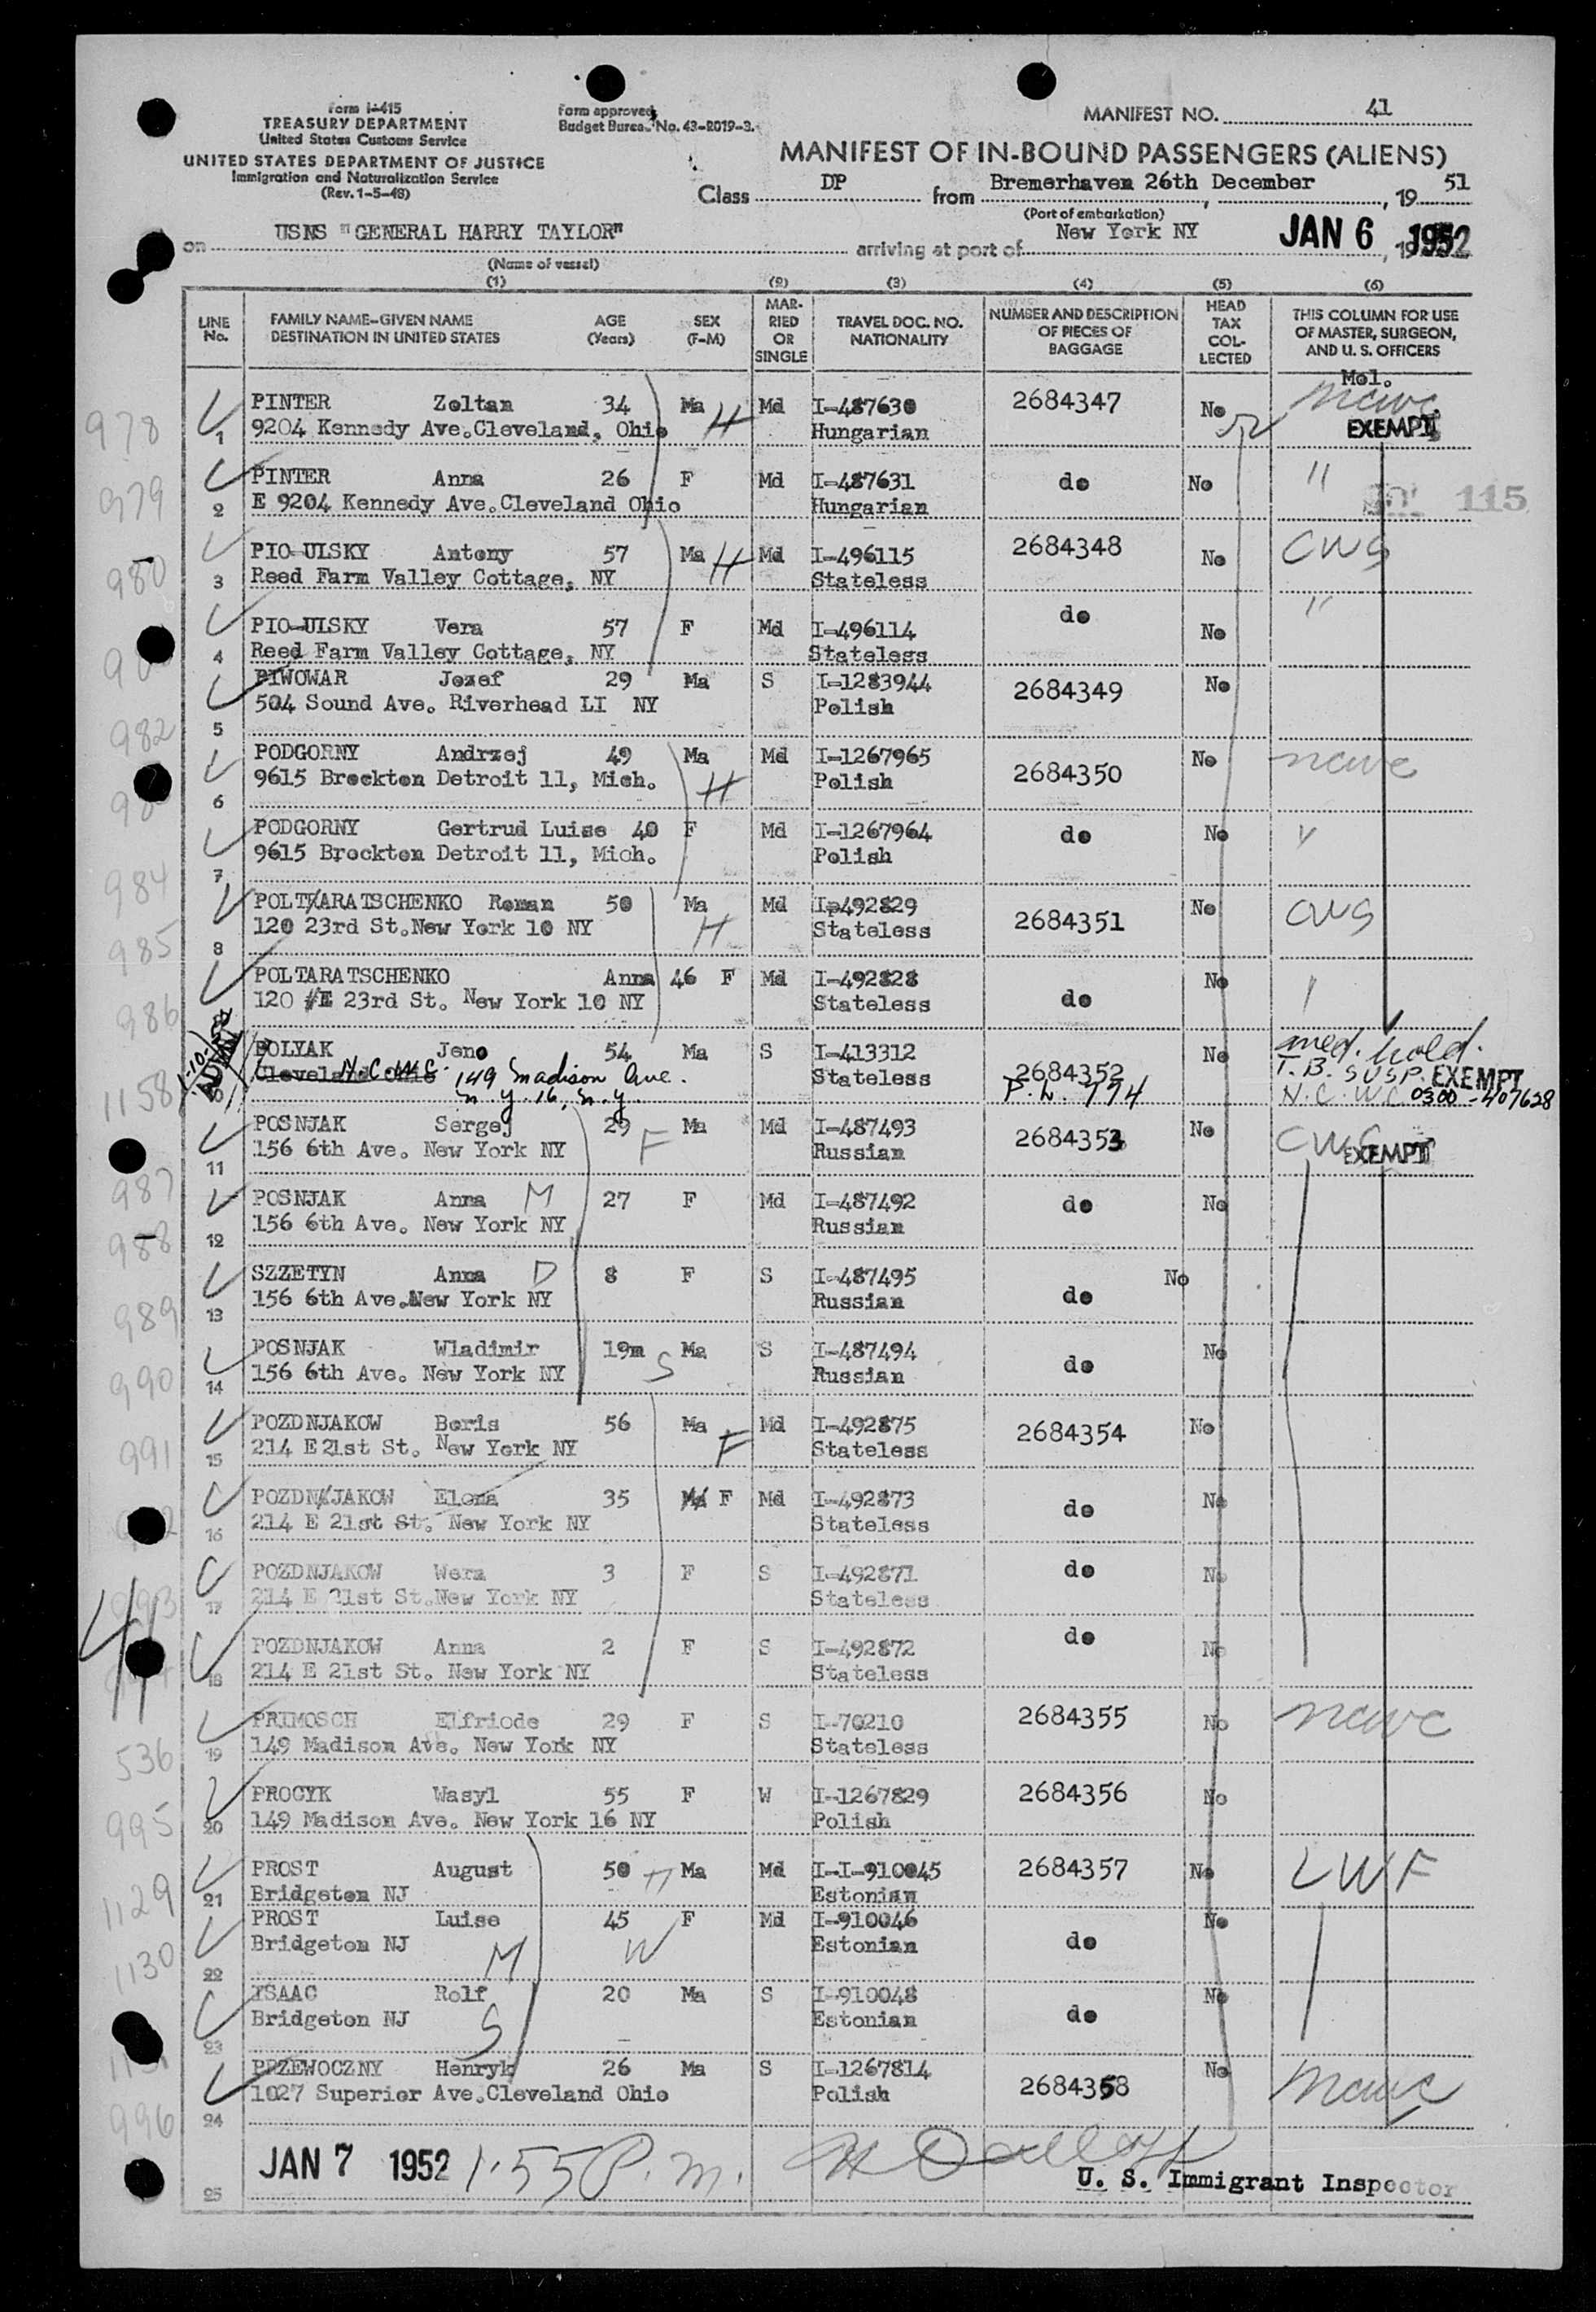 Form I-415
TREASURY DEPARTMENT
United States Customs Service
UNITED STATES DEPARTMENT OF JUSTICE
Immigration and Naturalization Service
(Rev. 1-5-48)
Form approved
Budget Bureau No. 43-R019-3.
MANIFEST NO. 41
MANIFEST OF IN-BOUND PASSENGERS (ALIENS)
Class DP from Bremerhaven 26th December, 19 51
(Port of embarkation)
on USNS "GENERAL HARRY TAYLOR" arriving at port of New York NY JAN 6 1952
(Name of vessel)
(1) (2) (3) (4) (5) (6)
LINE No. FAMILY NAME-GIVEN NAME DESTINATION IN UNITED STATES AGE (Years) SEX (F-M) MARRIED OR SINGLE TRAVEL DOC. NO. NATIONALITY NUMBER AND DESCRIPTION OF PIECES OF BAGGAGE HEAD TAX COLLECTED THIS COLUMN FOR USE OF MASTER, SURGEON, AND U. S. OFFICERS
Mol.
978 1 PINTER Zoltan 34 Ma H Md I-487630 2684347 No ncwc
9204 Kennedy Ave.Cleveland, Ohio Hungarian EXEMPT
979 2 PINTER Anna 26 F Md I-487631 do No "
E 9204 Kennedy Ave.Cleveland Ohio Hungarian 115
980 3 PIO-ULSKY Antony 57 Ma H Md I-496115 2684348 No CWS
Reed Farm Valley Cottage, NY Stateless
4 PIO-ULSKY Vera 57 F Md I-496114 do No "
Reed Farm Valley Cottage, NY Stateless
5 PIWOWAR Jozef 29 Ma S I-1283944 2684349 No
504 Sound Ave. Riverhead LI NY Polish
982
6 PODGORNY Andrzej 49 Ma H Md I-1267965 2684350 No ncwc
9615 Brockton Detroit 11, Mich. Polish
7 PODGORNY Gertrud Luise 40 F Md I-1267964 do No "
9615 Brockton Detroit 11, Mich. Polish
984
8 POLTXARATSCHENKO Roman 50 Ma H Md I-492829 2684351 No CWS
120 23rd St.New York 10 NY Stateless
985
9 POLTARATSCHENKO Anna 46 F Md I-492828 do No
120 E 23rd St. New York 10 NY Stateless
986
1158 POLYAK Jeno 54 Ma S I-413312 2684352 No med. hold.
Cleveland Ohio N.C.W.C. 149 Madison Ave. Stateless P.L. 774 T.B. SUSP. EXEMPT
n.y. 16, n.y. N.C.W.C 0300-407628
11 POSNJAK Sergej 29 F Ma Md I-487493 2684353 No CWS
156 6th Ave. New York NY Russian EXEMPT
987
12 POSNJAK Anna M 27 F Md I-487492 do No
156 6th Ave. New York NY Russian
988
13 SZZETYN Anna D 8 F S I-487495 do No
156 6th Ave.New York NY Russian
989
14 POSNJAK Wladimir 19m S Ma S I-487494 do No
156 6th Ave. New York NY Russian
990
15 POZDNJAKOW Boris 56 Ma F Md I-492875 2684354 No
214 E 21st St. New York NY Stateless
991
16 POZDNJAKOW Elona 35 Ma F Md I-492873 do No
214 E 21st St. New York NY Stateless
17 POZDNJAKOW Wera 3 F S I-492871 do No
214 E 21st St.New York NY Stateless
993
41
18 POZDNJAKOW Anna 2 F S I-492872 do No
214 E 21st St. New York NY Stateless
19 PRIMOSCH Elfriede 29 F S I-70210 2684355 No ncwc
149 Madison Ave. New York NY Stateless
536
20 PROCYK Wasyl 55 F W I-1267829 2684356 No
149 Madison Ave. New York 16 NY Polish
995
21 PROST August 50 H Ma Md I-I-910045 2684357 No LWF
Bridgeton NJ Estonian
1129
22 PROST Luise 45 F Md I-910046 do No
Bridgeton NJ M W Estonian
1130
23 ISAAC Rolf 20 Ma S I-910048 do No
Bridgeton NJ S Estonian
24 PRZEWOCZNY Henryk 26 Ma S I-1267814 2684358 No ncwc
1027 Superior Ave.Cleveland Ohio Polish
996
25 JAN 7 1952 1:55 P.m.
U. S. Immigrant Inspector